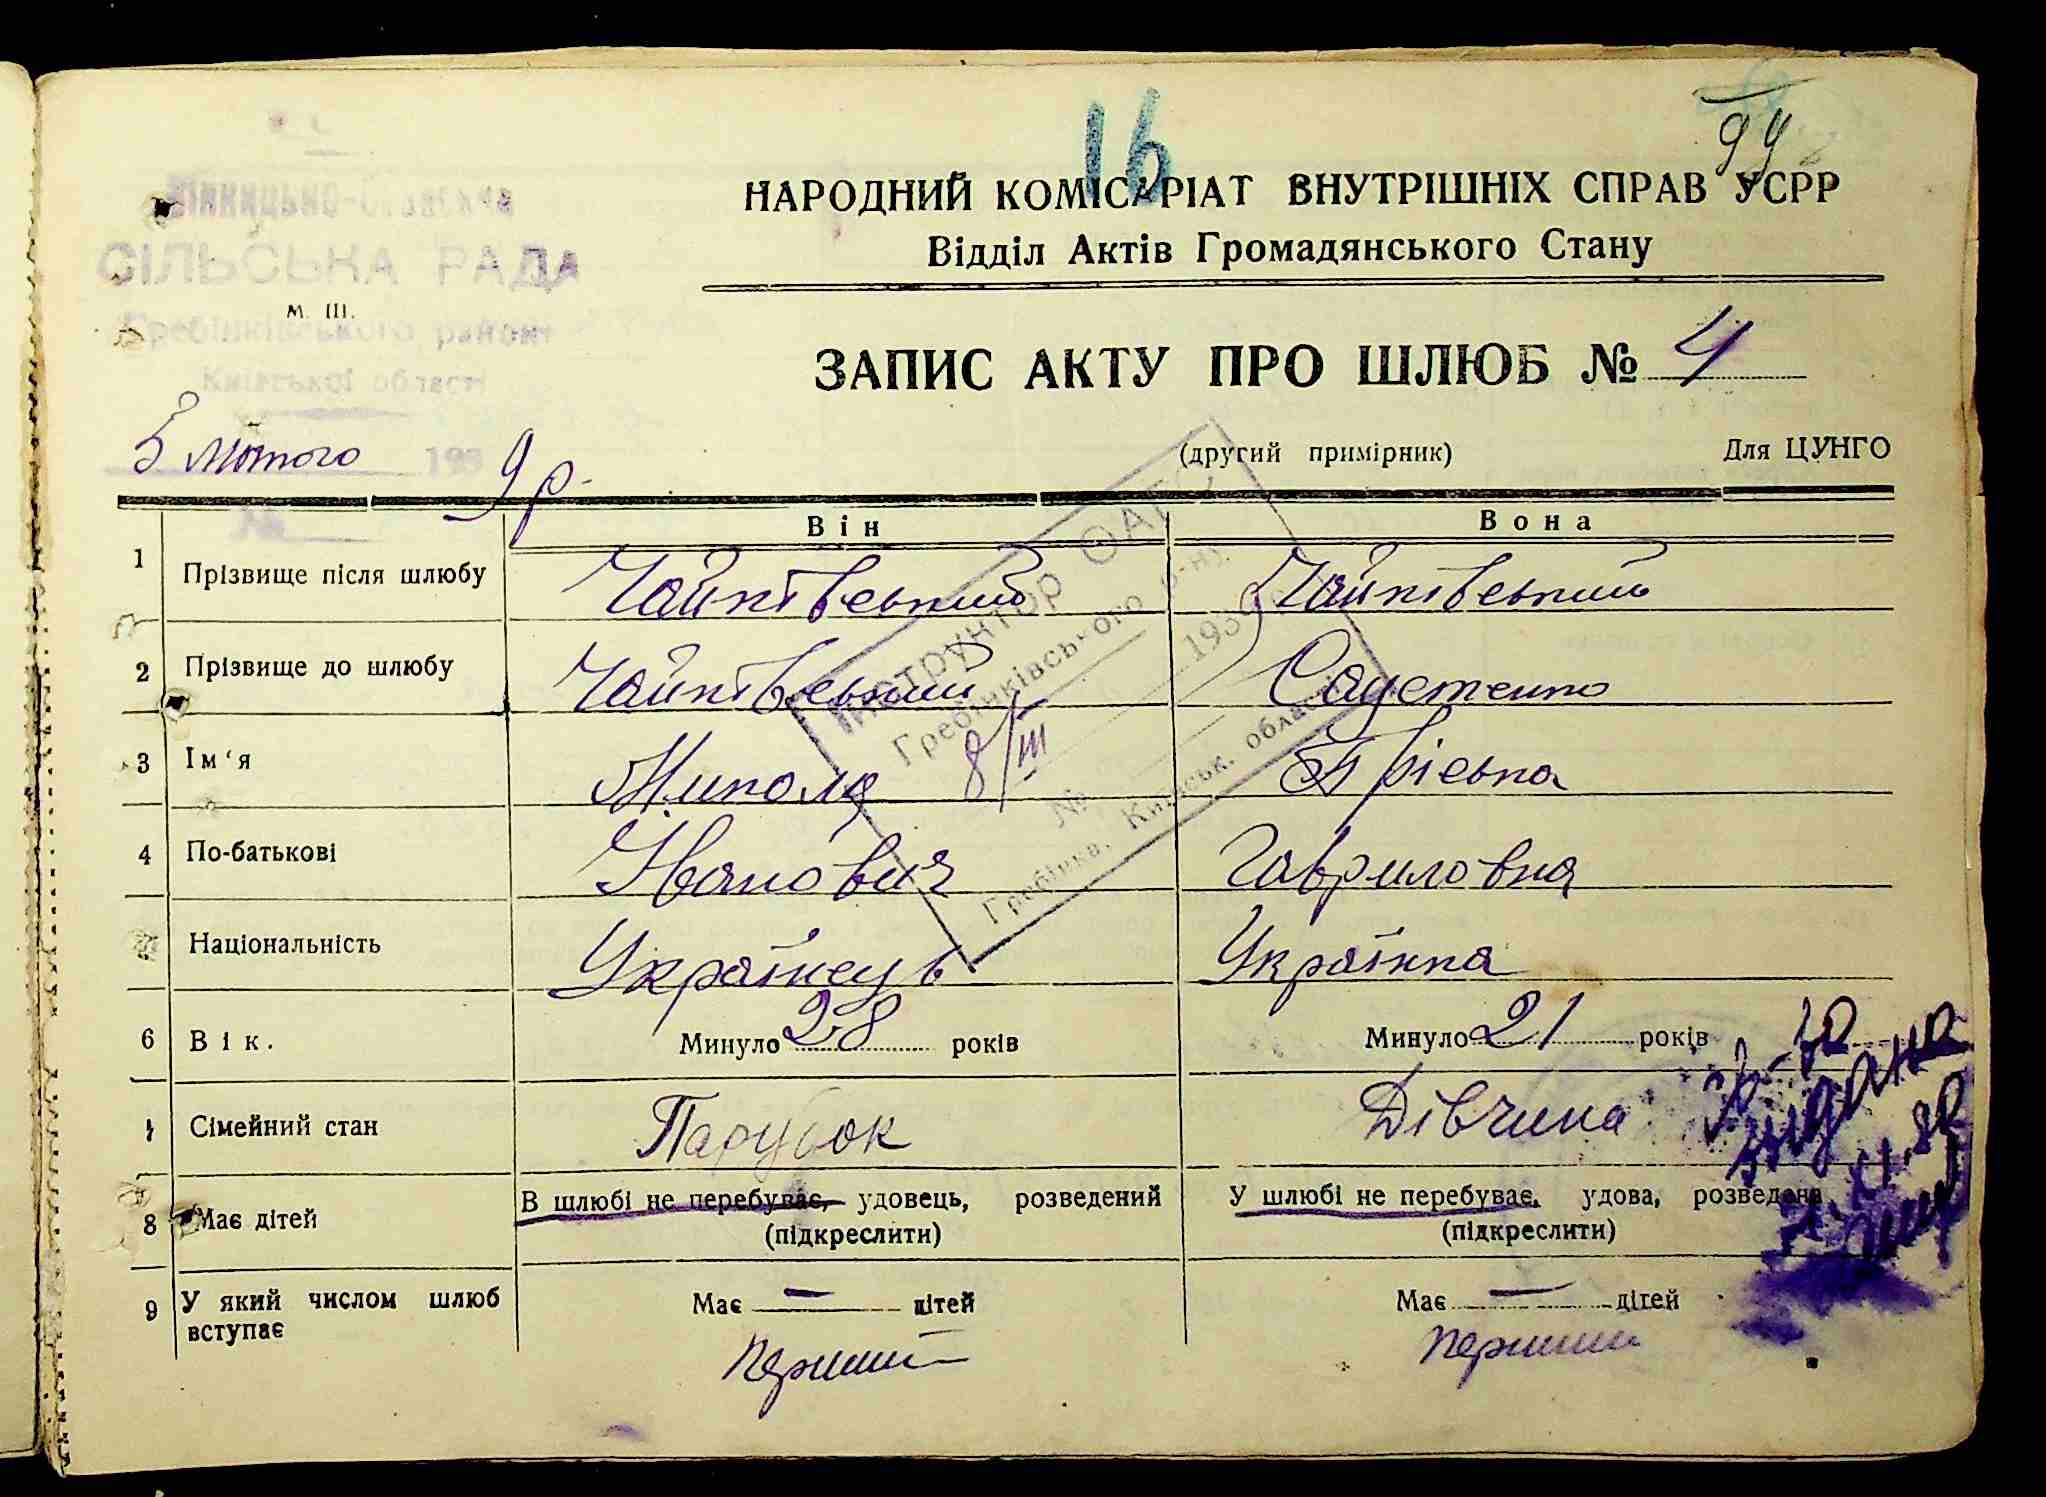 16
99
СІЛЬСЬКА РАДА
Гребінківського району
Київської області
НАРОДНИЙ КОМІСАРІАТ ВНУТРІШНІХ СПРАВ УСРР
Відділ Актів Громадянського Стану
М. Ш.
ЗАПИС АКТУ ПРО ШЛЮБ № 4
5 лютого 1939 р.
(другий примірник) Для ЦУНГО
№
Він Вона
1 Прізвище після шлюбу Чайківський Чайківський
2 Прізвище до шлюбу Чайківський
3 Ім'я Микола Пріська
8/III
4 По-батькові Іванович Гавриловна
Національність Українець Українка
6 Вік. Минуло 28 років Минуло 21 років
Сімейний стан Парубок Дівчина
8 Має дітей В шлюбі не перебуває, удовець, розведений У шлюбі не перебуває, удова, розведена
(підкреслити) (підкреслити)
9 У який числом шлюб вступає Має — дітей Має — дітей
перший перший
Інструктор ОАГС
Гребінківського р-ну
193
№
Гребінка, Київськ. області
видано